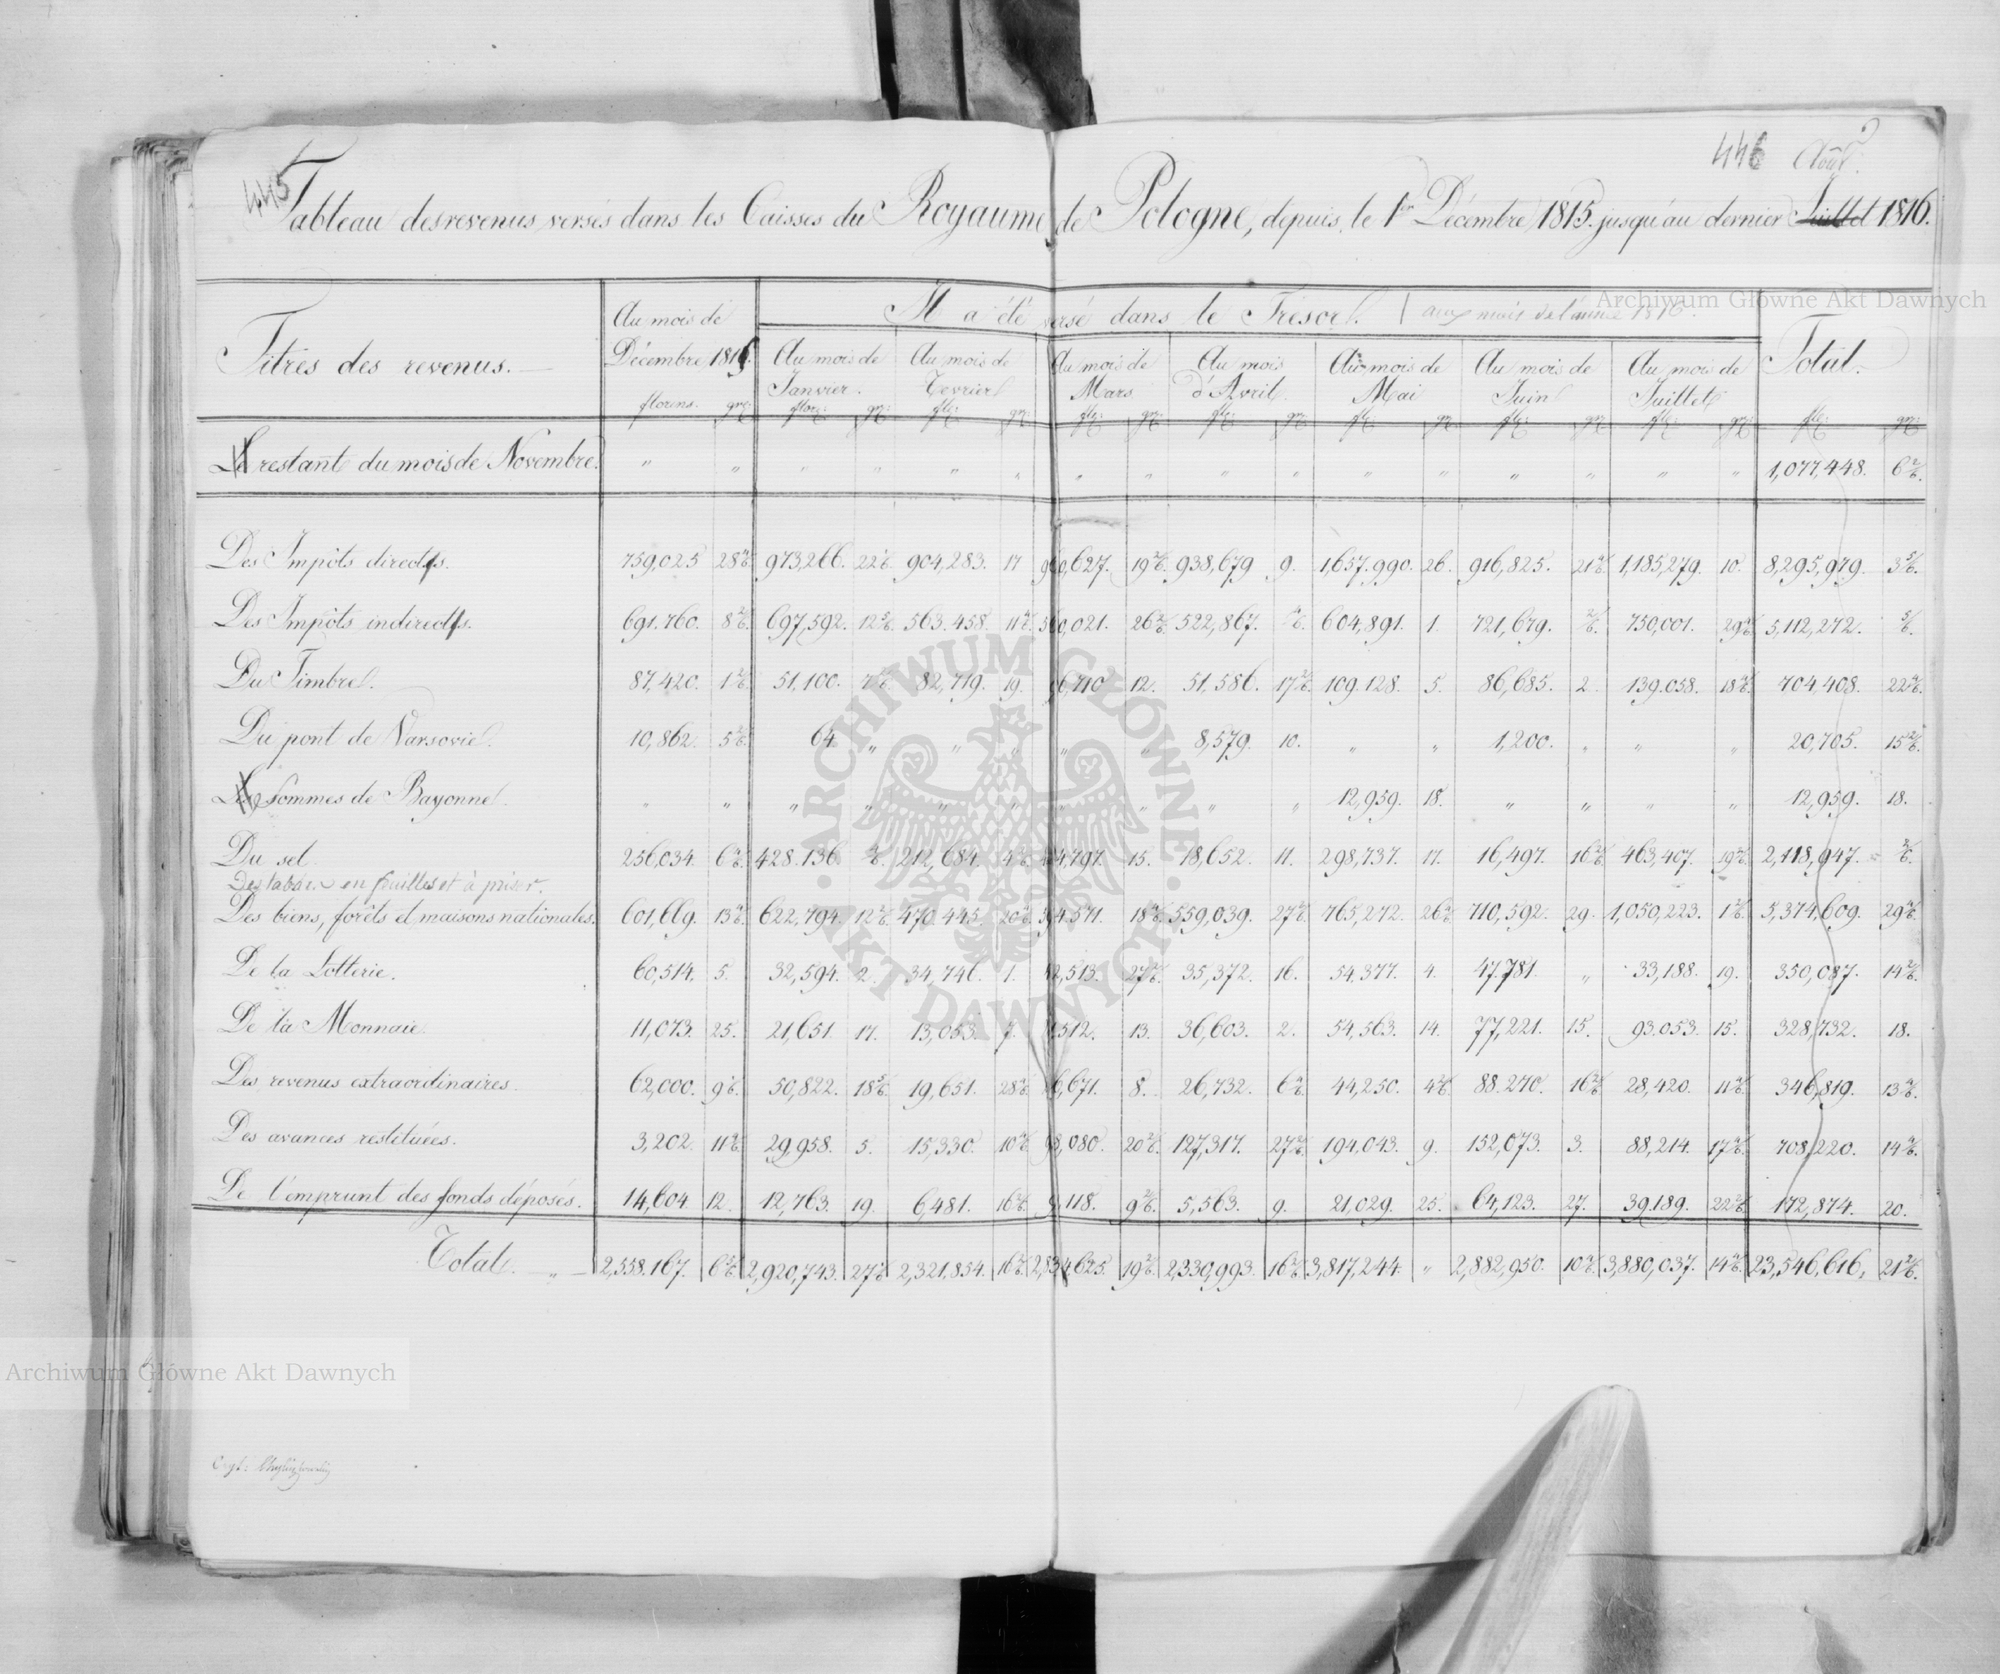 445
446 Août?
Tableau des revenus versés dans les Caisses du Royaume de Pologne, depuis le 1er Décembre 1815. jusqu'au dernier Juillet 1816.
Archiwum Główne Akt Dawnych
Titres des revenus. Au mois de Décembre 1815 Il a été versé dans le Trésor. aux mois de l'année 1816. Total.
Au mois de Janvier. Au mois de Fevrier Au mois de Mars Au mois d'Avril Au mois de Mai Au mois de Juin Au mois de Juillet
florens. grz: florz: grz: flz: grz: flz: grz: flz: grz: flz: grz: flz: grz: flz: grz: flz: grz:
Le restant du mois de Novembre. " " " " " " " " " " " " " " " " 1,077,448. 6 2/6.
Des Impôts directs. 759,025 28 973,266. 22 904,283. 17 627. 19 938,679 9. 1,657,990. 26. 916,825. 21 1,185,279. 10. 8,295,979. 3 5/6.
Des Impôts indirects. 691,760. 8 697,592. 12 563,458. 11 021. 26 522,867. 604,891. 1. 721,679. 750,001. 29 5,112,272. 5/6.
Du Timbre. 87,420. 1 51,100. 7 82,719. 19. 6,710 12. 51,586. 17 109,128. 5. 86,685. 2. 139,058. 18 704,408. 22
Du pont de Varsovie. 10,862. 5 64 " " " " " 8,579. 10. " " 1,200. " " " 20,705. 15
Les sommes de Bayonne. " " " " " " " " " " 12,959. 18. " " " " 12,959. 18.
Du sel 256,034. 6 428,136 212,684. 4 4,797. 15. 18,652. 11. 298,737. 17. 16,497. 16 463,407. 19 2,118,947.
Des tabacs en feuilles et à priser.
Des biens, forêts et maisons nationales. 601,669. 13 622,794. 12 470,445. 20 4,571. 18 559,039. 27 765,272. 26 710,592. 29. 1,050,223. 1 5,374,609. 29
De la Lotterie. 60,514. 5. 32,594. 2. 34,746. 1. 2,513. 27 35,372. 16. 54,377. 4. 47,781. " 33,188. 19. 350,087. 14
De la Monnaie. 11,073. 25. 21,651 17. 13,053. 7. 512. 13. 36,603. 2. 54,563. 14. 77,221. 15. 93,053. 15. 328,732. 18.
Des revenus extraordinaires. 62,000. 9 50,822. 18 19,651. 28 6,671. 8. 26,732. 6 44,250. 4 88,270. 16 28,420. 11 346,819. 13
Des avances restituées. 3,202. 11 29,958. 5. 15,330. 10 8,080. 20 127,317. 27 194,043. 9. 152,073. 3. 88,214. 17 708,220. 14
De l'emprunt des fonds déposés. 14,604. 12. 12,763. 19. 6,481. 16 118. 9 5,563. 9. 21,029. 25. 64,123. 27. 39,189. 22 172,874. 20.
Total. " 2,558,167. 6 2,920,743. 27 2,321,854. 16 2,834,625. 19 2,330,993. 16 3,817,244. " 2,882,950. 10 3,880,037. 14 23,546,616, 21
ARCHIWUM GŁÓWNE AKT DAWNYCH
Archiwum Główne Akt Dawnych